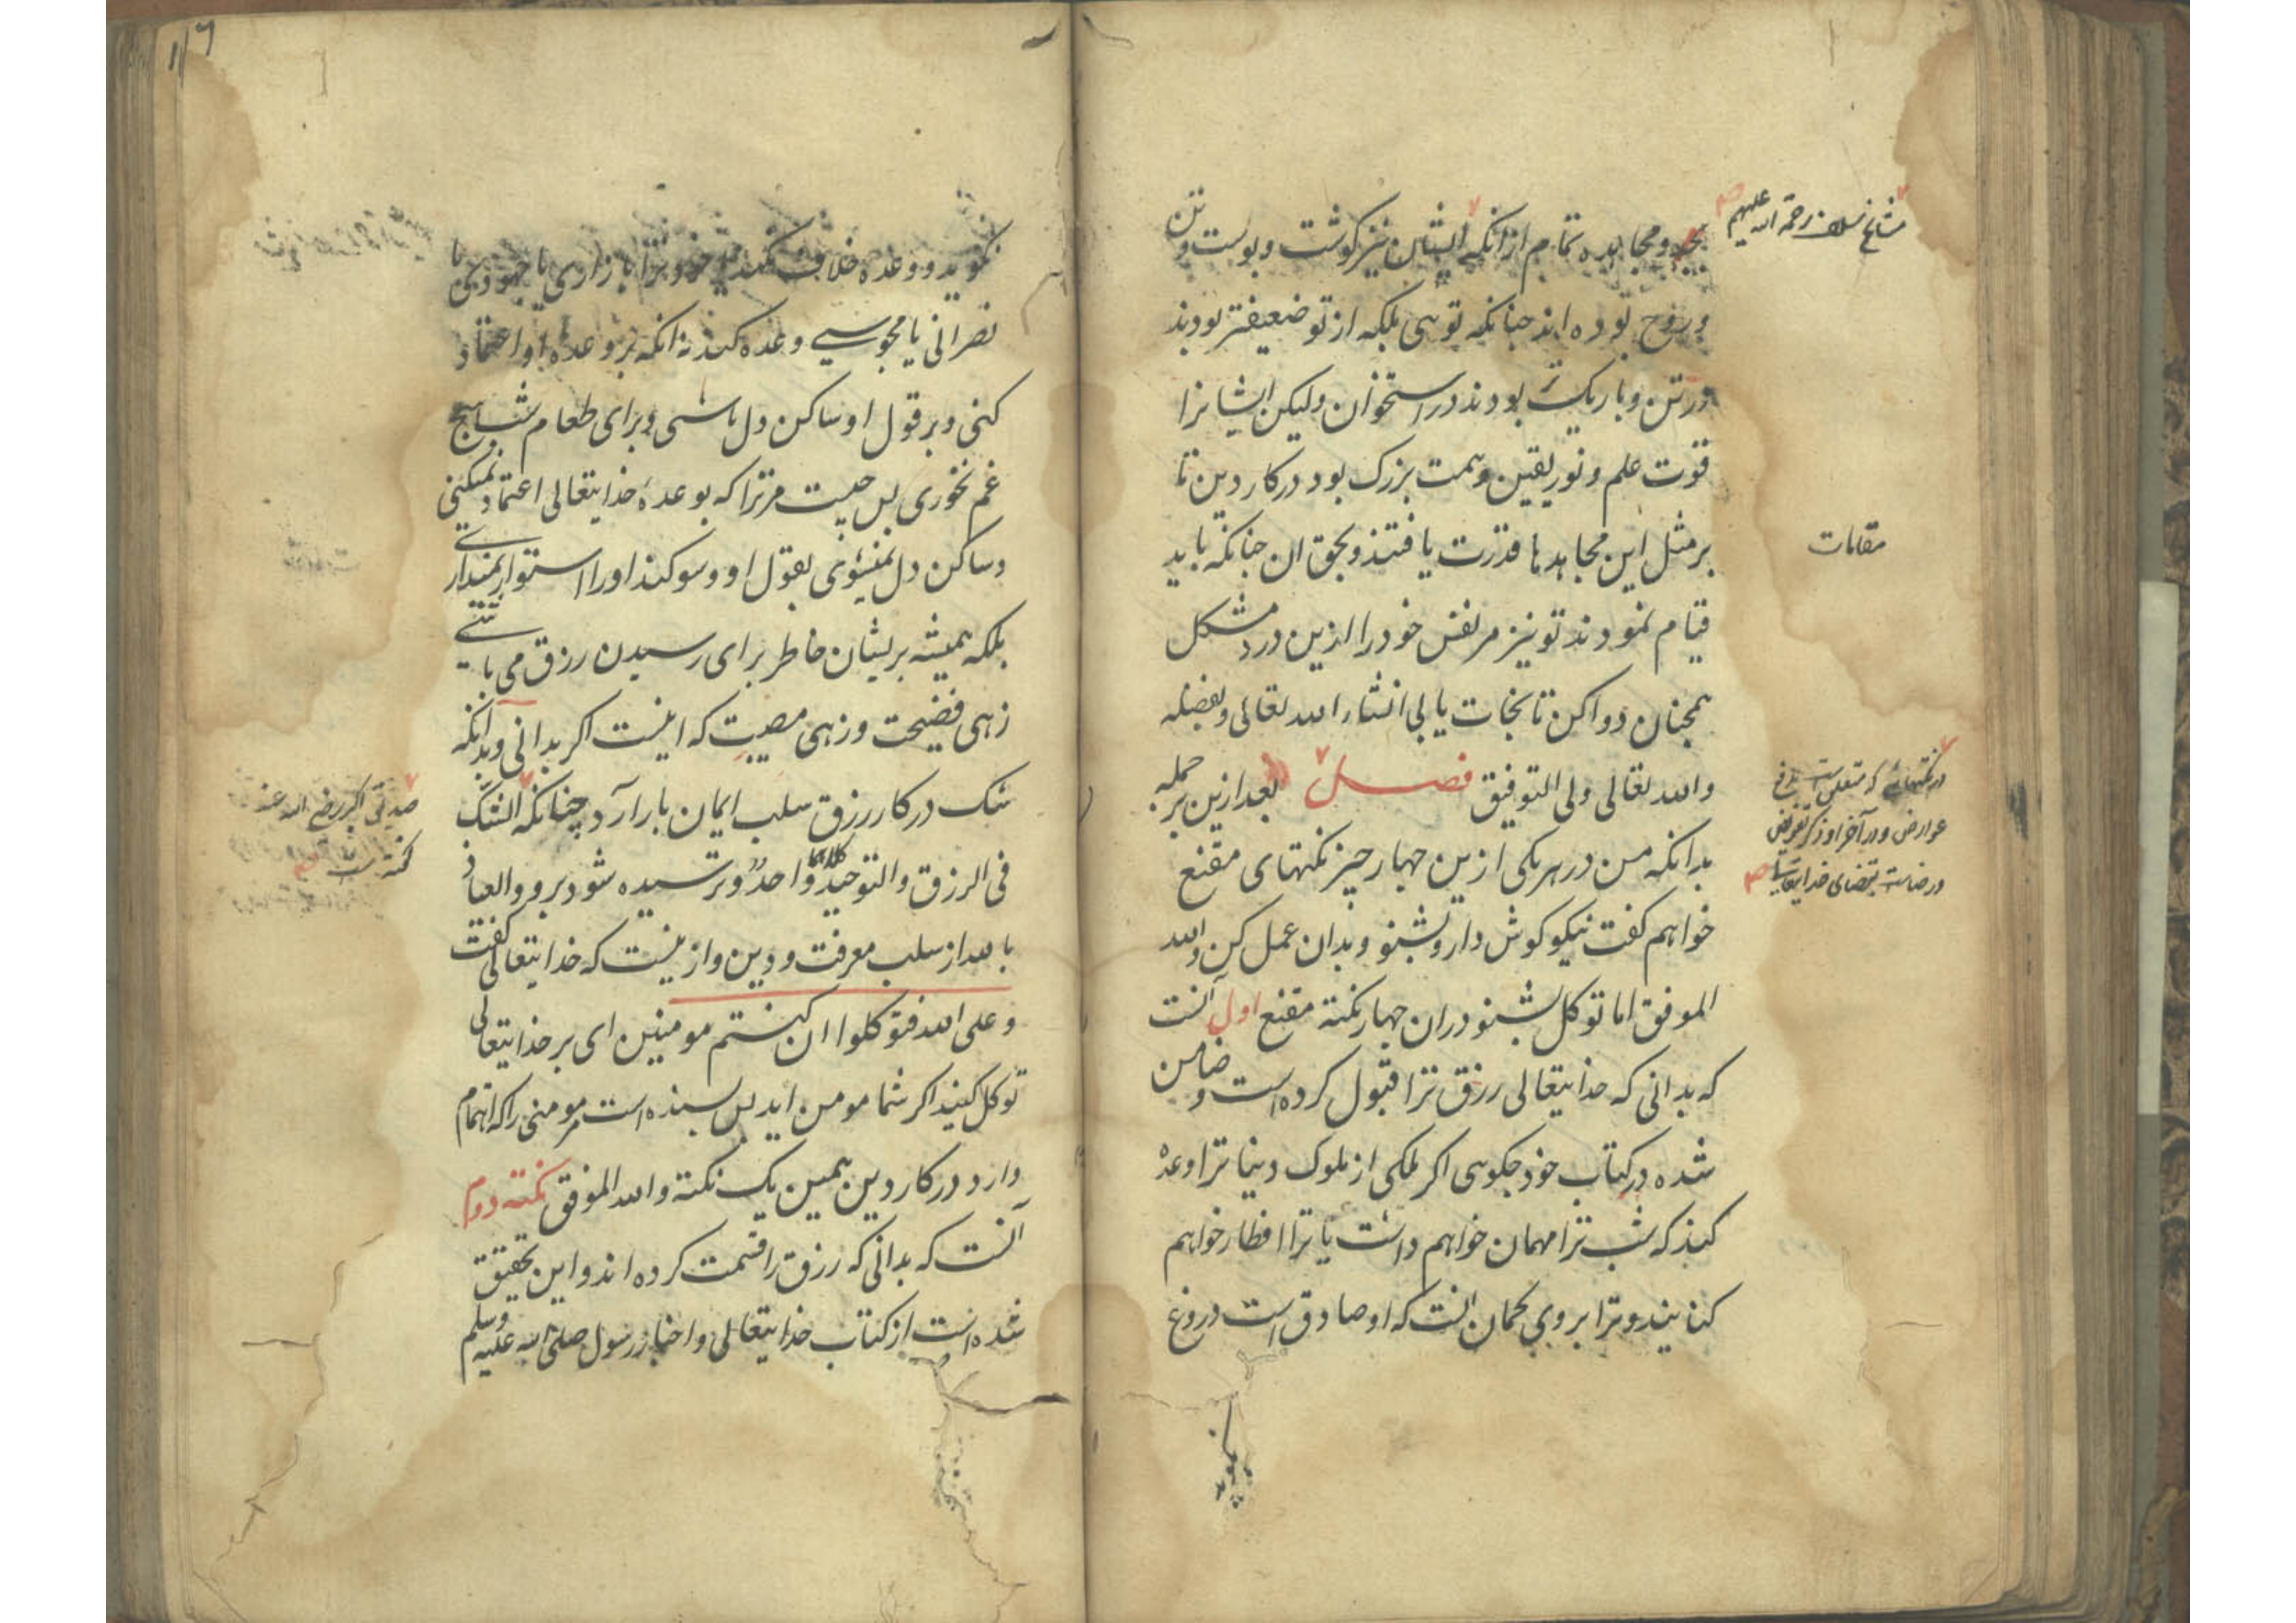 بجد و مجاهده تمام از انکه ایشان نیز کوشت و پوست و تن
و روح بوده اند جنانکه توی بلکه از تو ضعیفتر بودند
در تن و باریک تر بودند در استخوان ولیکن ایشانرا
قوت علم و نور یقین و همت بزرک بود در کار دین تا
بر مثل این مجاهدها قدرت یافتند و بحق ان جنانکه باید
قیام نمودند تو نیز مر نفس خود را ازین درد مشکل
همجنان دوا کن تا نجات یابی انشاء الله تعالی و بفضله
والله تعالی ولی التوفیق فصل بعد ازین بر جمله
بدانکه من در هر یکی ازین جهار جیز نکتهای مقنع
خواهم کفت نیکو کوش دار و بشنو و بدان عمل کن والله
الموفق اما توکل بشنو دران جهار نکته مقنع اول آنست
که بدانی که خدایتعالی رزق ترا قبول کرده است و ضامن
شده در کتاب خود جکوی اکر ملکی از ملوک دنیا ترا وعده
کند که شب ترا مهمان خواهم داشت یا ترا افطار خواهم
کنانیند و ترا بروی کمان انست که او صادق است دروغ
مشایخ سلف رحمة الله علیهم
مقامات
در نکتهائی که متعلق است بدفع
عوارض و در آخر او ذکر تفویض
و رضاست بقضای خدایتعالی
نکوید و وعده خلاف نکند بازاری یا جهودی یا
نصرانی یا مجوسی وعده کند نه انکه بر وعده او اعتماد
کنی و بر قول او ساکن دل باشی و برای طعام شب هیج
غم نخوری پس جیست مر ترا که بوعدهٔ خدایتعالی اعتماد نمیکنی
و ساکن دل نمیشوی بقول او و سوکند او را استوار نمیداری
بلکه همیشه بریشان خاطر برای رسیدن رزق می باشی
زهی فضیحت و زهی مصیبت که اینست اکر بدانی و بدانکه
شک در کار رزق سلب ایمان بار آرد چنانکه الشک
فی الرزق والتوحید کلاهما واحد و ترسیده شود برو والعیاذ
بالله از سلب معرفت و دین و ازینست که خدایتعالی کفت
وعلی الله فتوکلوا ان کنتم مومنین ای بر خدایتعالی
توکل کنید اکر شما مومن اید پس بسنده است مر مومنی را که اهتمام
دارد در کار دین همین یک نکته والله الموفق نکته دوم
آنست که بدانی که رزق را قسمت کرده اند و این تحقیق
شده است از کتاب خدایتعالی و اخبار رسول صلی الله علیه وسلم
صدیق اکبر رضی الله عنه
کفته است